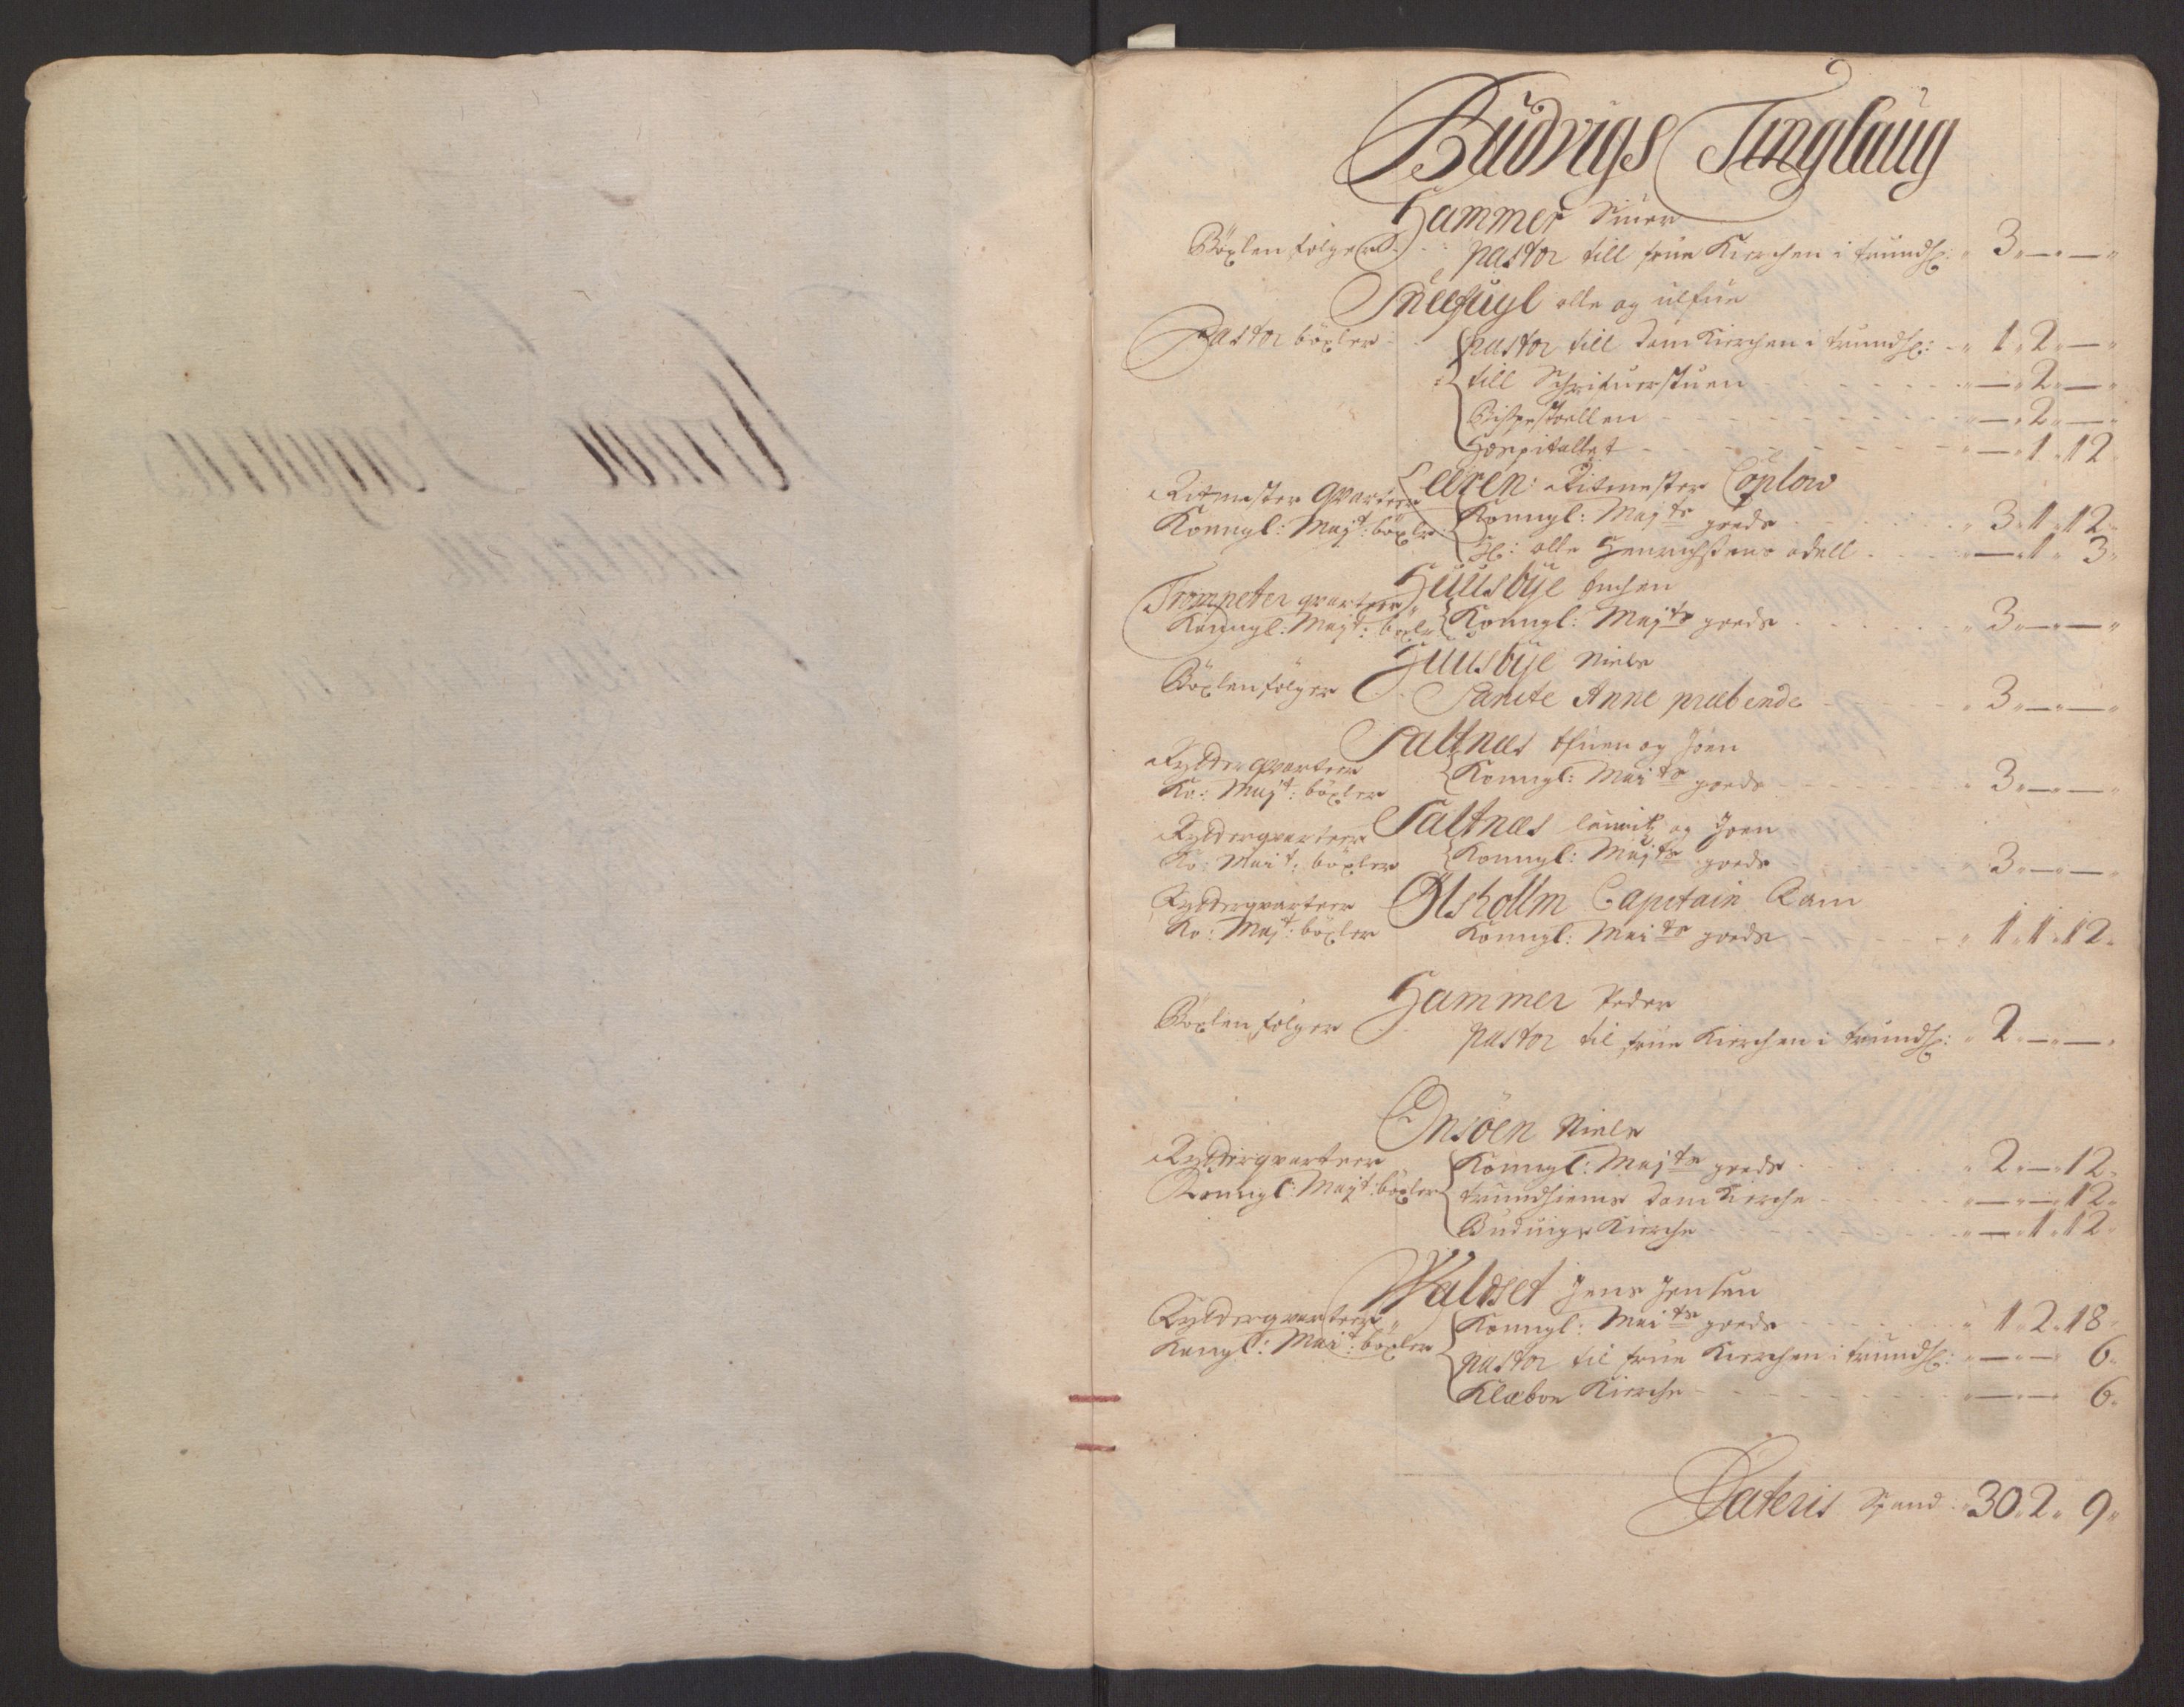 Büdvigs Tinglaug
Hammer Siuer
Böxlen følger pastor till frue Kirchen i trundh: 3 — —
Sneefugl olle og
Pastor böxler pastor till Dom Kirchen i trundh: 1 2 —
till Schrifuerstuen — 2 —
Bispestoellen — 2 —
Hospitallet — 1 12
Leeren: Ritmester Cöplow
Ritmester qvarteer Konngl: Maj:ts goeds 3 1 12
Konngl: Majt: böxler H: olle Henrichsens odell — 1 3
Huusbye
Trompeter qvarteer
Konngl: Majt: böxler Konngl: Majts goeds 3 — —
Huusbye Niels
Böxlen følger Sancte Anne præbende 3 — —
Saltnæs og Joen
Rytterqvarteer
Ko: Majt: böxler Konngl: Maits goeds 3 — —
Saltnæs lauritz og Joen
Rytterqvarteer
Ko: Mait: böxler Konngl: Majts goeds 3 — —
Ölshollm Capitain Ram
Rytterqvarteer
Ko: Majt: böxler Konngl: Maits goeds 1 1 12
Hammer Peder
Böxlen følger pastor til frue Kirchen i trundh: 2 — —
Onsöen Niels
Rytterqvarteer Konngl: Majts goeds 2 — 12
Konngl: Majt: böxler trundhiems Dom Kirche — — 12
Buduigs Kirche — 1 12
Waldset Jens Jensen
Rytterqvarteer Konngl: Maits goeds 1 2 18
Kongl: Mait: böxler pastor til frue Kirchen i trundh: — — 6
Klæboe Kirche — — 6
Lateris Spand 30 2 9